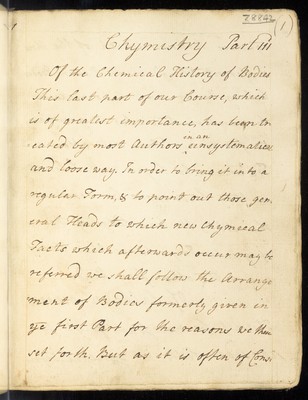 (1)
Chymistry Part III
Of the Chemical History of Bodies
This last part of our Course, which
is of greatest importance, has been tre
eated by most Authors in an unsystematical
and loose way. In order to bring it into a
regular Form, & to point out those gen,
eral Heads to which new Chymical
Facts which afterwards occur may be
referred we shall follow the Arrange
ment of Bodies formerly given in
ye first Part for the reasons we then
set forth. But as it is often of Consi